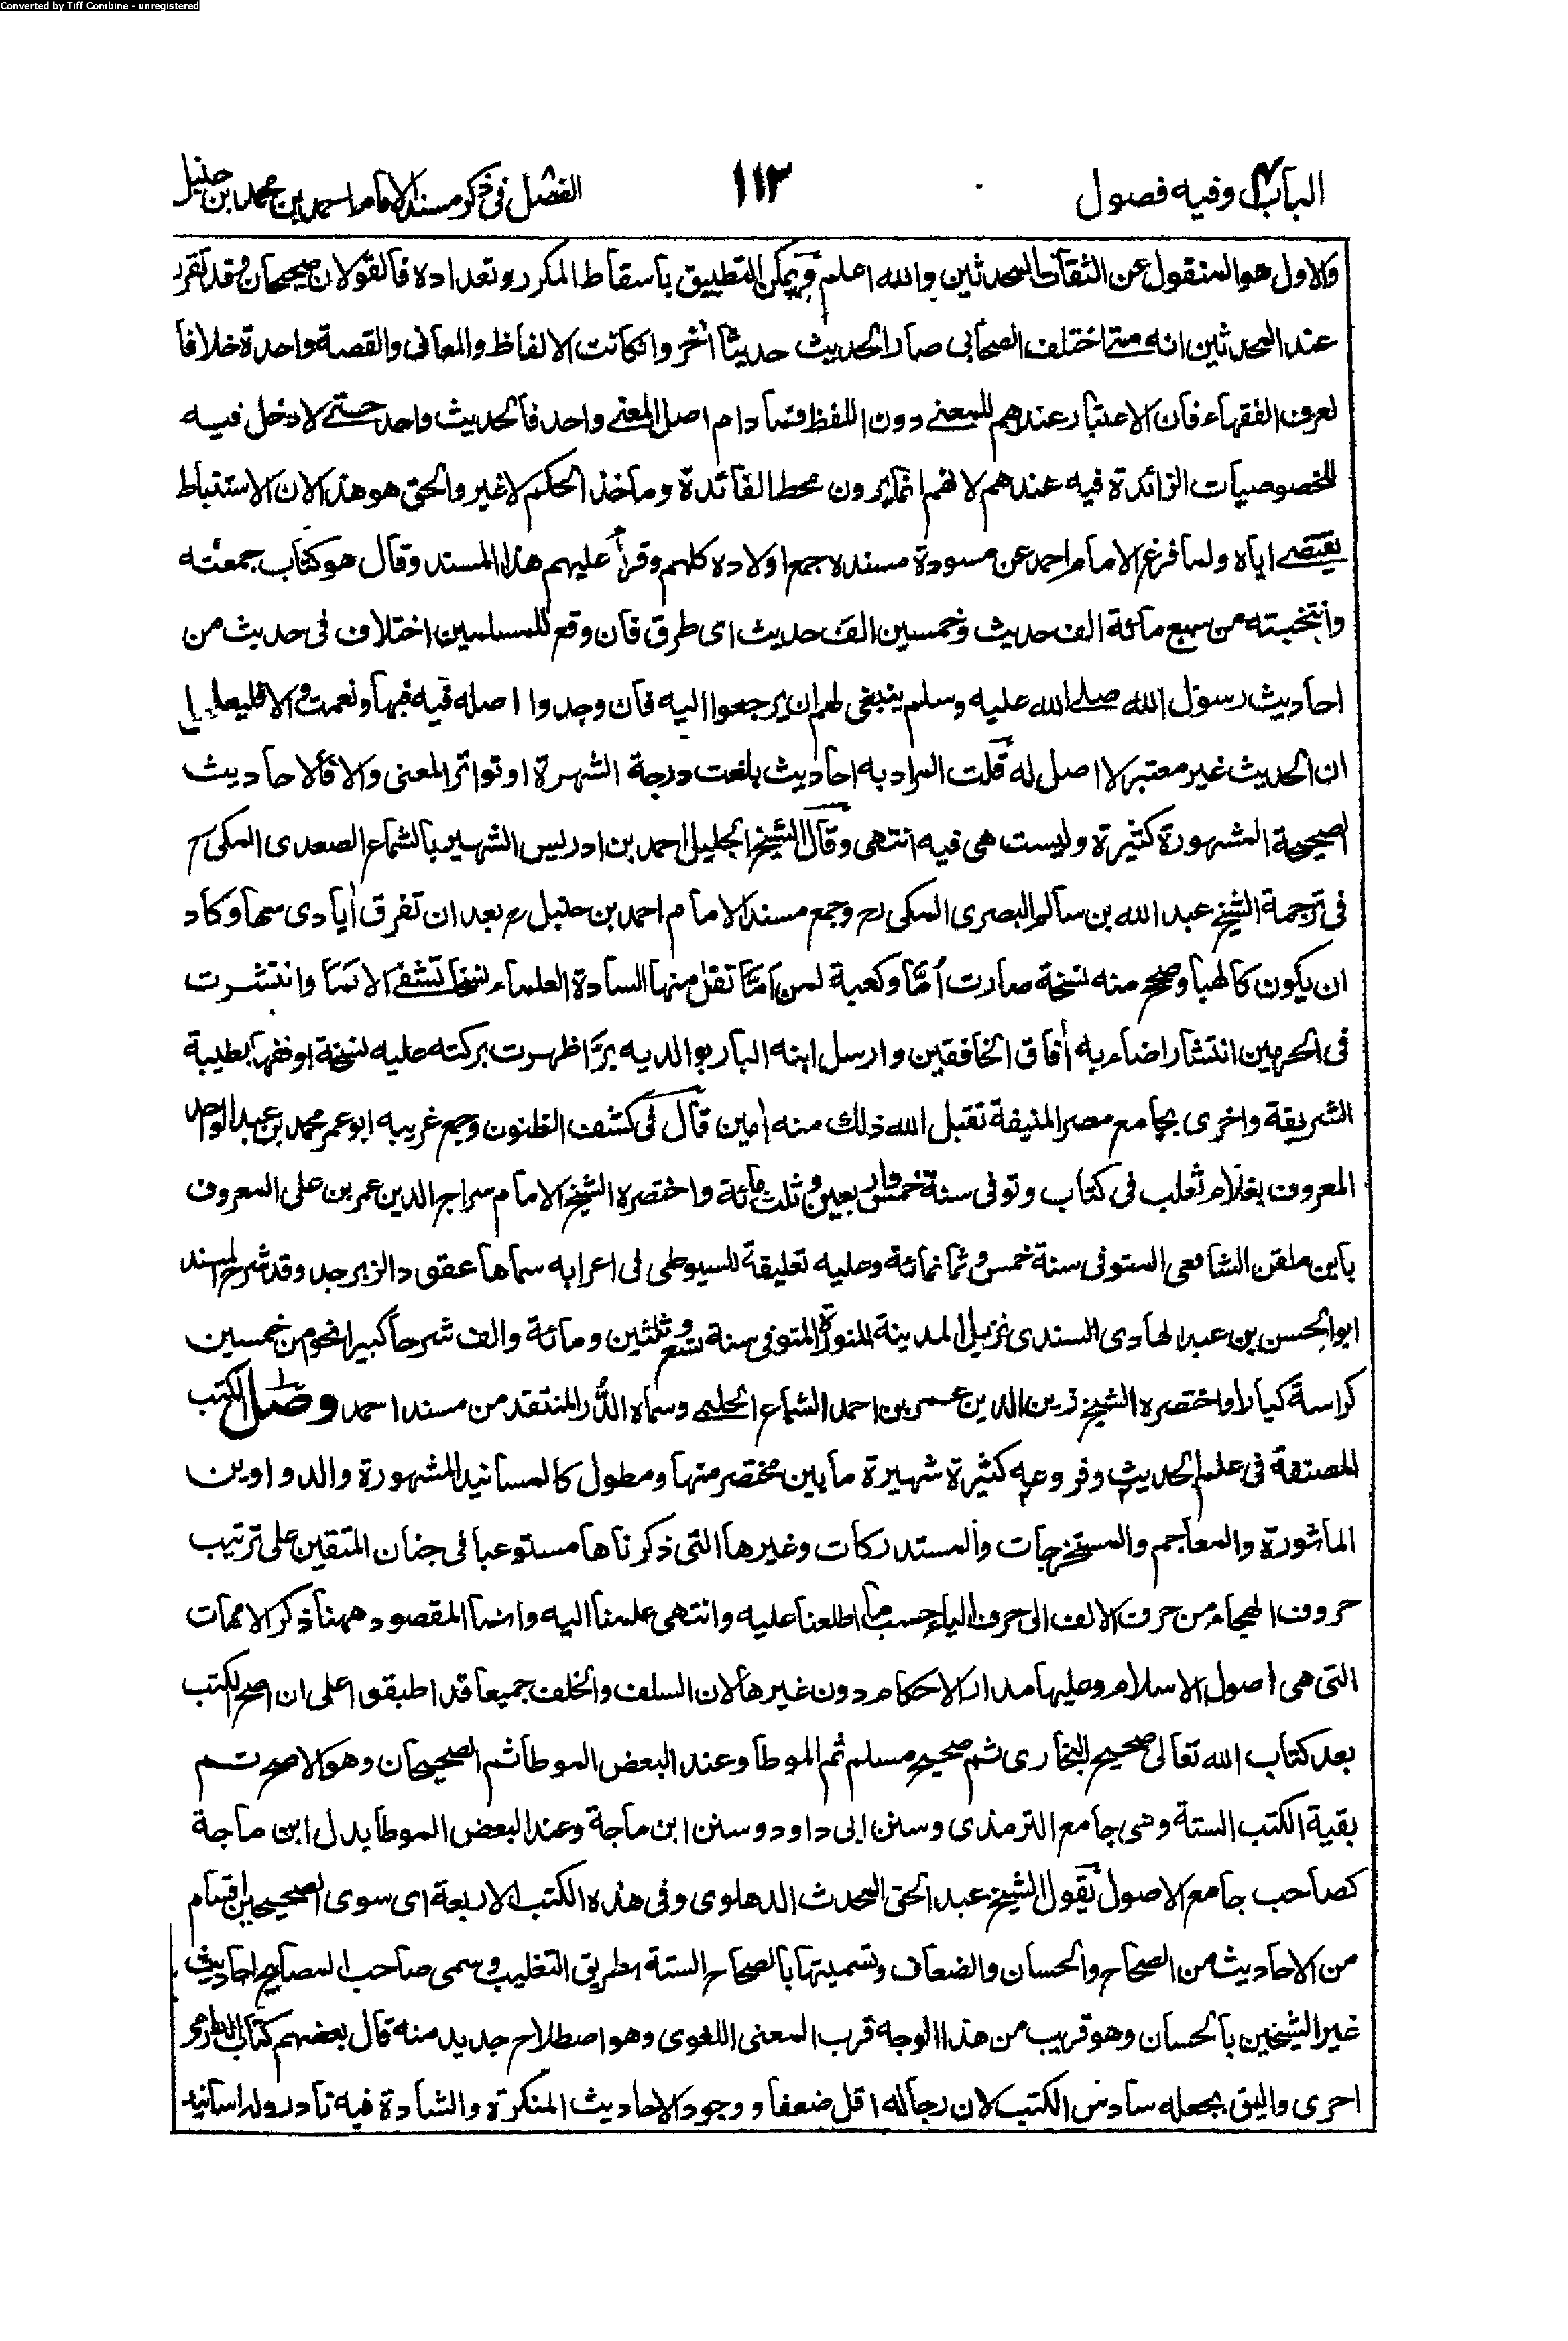 Converted by Tiff Combine - unregistered
الباب وفيه فصول ١١٣ الفصل في ذكر مسند الامام احمد بن محمد بن حنبل
والاول هو المنقول عن الثقات المحدثين والله اعلم ويمكن التطبيق باسقاط المكرر وتعداده فالقولان صحيحان وقد تقرر
عند المحدثين انه متى اختلف الصحابي صار الحديث حديثا اٰخر وان كانت الالفاظ والمعاني والقصة واحدة خلافا
لعرف الفقهاء فان الاعتبار عندهم للمعنى دون اللفظ فما دام اصل المعنى واحد فالحديث واحد حتى لا دخل فيه
للخصوصيات الزائدة فيه عندهم لانهم انما يرون محط الفائدة وماخذ الحكم لا غير والحق هو هذا لان الاستنباط
يقتضى اياه ولما فرغ الامام احمد عن مسودة مسنده جمع اولاده كلهم وقرأ عليهم هذا المسند وقال هو كتاب جمعته
وانتخبته من سبع مائة الف حديث وخمسين الف حديث اى طرق فان وقع للمسلمين اختلاف فى حديث من
احاديث رسول الله صلى الله عليه وسلم ينبغى لهم ان يرجعوا اليه فان وجدوا اصله فيه فبها ونعمت والا فليعلموا
ان الحديث غير معتبر لا اصل له قلت المراد به احاديث بلغت درجة الشهرة او تواتر المعنى والا فالاحاديث
الصحيحة المشهورة كثيرة وليست هى فيه انتهى وقال الشيخ الجليل احمد بن ادريس الشهير بالشماع الصعدى المكى
فى ترجمة الشيخ عبد الله بن سالم البصرى المكى رح وجمع مسند الامام احمد بن حنبل رح بعد ان تفرق اٰيادى سبا وكاد
ان يكون كالهبا وصحح منه نسخة صارت اُمًّا وكعبة لمن اَمَّا نقل منها السادة العلماء نسخا تشفى الاَنَما وانتشرت
فى الحرمين انتشارا ضاء به اٰفاق الخافقين وارسل ابنه البار بوالديه برّا ظهرت بركته عليه نسخة اوقفها بطيبة
الشريفة واخرى بجامع مصر المنيفة تقبل الله ذلك منه اٰمين قال فى كشف الظنون وجمع غريبه ابو عمر محمد بن عبد الواحد
المعروف بغلام ثعلب فى كتاب وتوفى سنة خمس واربعين وثلث مائة واختصره الشيخ الامام سراج الدين عمر بن على المعروف
بابن ملقن الشافعى المتوفى سنة خمس وثمانمائة وعليه تعليقة للسيوطى فى اعرابه سماها عقود الزبرجد وقد شرح المسند
ابو الحسن بن عبد الهادى السندى نزيل المدينة المنورة المتوفى سنة تسع وثلثين ومائة والف شرحا كبيرا نحو من خمسين
كراسة كبارا واختصره الشيخ زين الدين عمر بن احمد الشماع الحلبى وسماه الدُّر المنتقد من مسند احمد وصل الكتب
المصنفة فى علم الحديث وفروعه كثيرة شهيرة ما بين مختصر منها ومطول كالمسانيد المشهورة والدواوين
الماثورة والمعاجم والمستخرجات والمستدركات وغيرها التى ذكرناها مستوعبا فى جنان المتقين على ترتيب
حروف الهجاء من حرف الالف الى حرف الياء حسب ما اطلعنا عليه وانتهى علمنا اليه وانما المقصود ههنا ذكر الامهات
التى هى اصول الاسلام وعليها مدار الاحكام دون غيرها لان السلف والخلف جميعا قد اطبقوا على ان اصح الكتب
بعد كتاب الله تعالى صحيح البخارى ثم صحيح مسلم ثم الموطا وعند البعض الموطا ثم الصحيحان وهو الاصح ثم
بقية الكتب الستة وهى جامع الترمذى وسنن ابى داود وسنن ابن ماجة وعند البعض الموطا بدل ابن ماجة
كصاحب جامع الاصول يقول الشيخ عبد الحق المحدث الدهلوى وفى هذه الكتب الاربعة اى سوى الصحيحين اقسام
من الاحاديث من الصحاح والحسان والضعاف وتسميتها بالصحاح الستة بطريق التغليب وسمى صاحب المصابيح احاديث
غير الشيخين بالحسان وهو قريب من هذا الوجه قرب المعنى اللغوى وهو اصطلاح جديد منه قال بعضهم كتاب الدارمى
احرى واليق بجعله سادس الكتب لان رجاله اقل ضعفا ووجود الاحاديث المنكرة والشاذة فيه نادر وله اسانيد